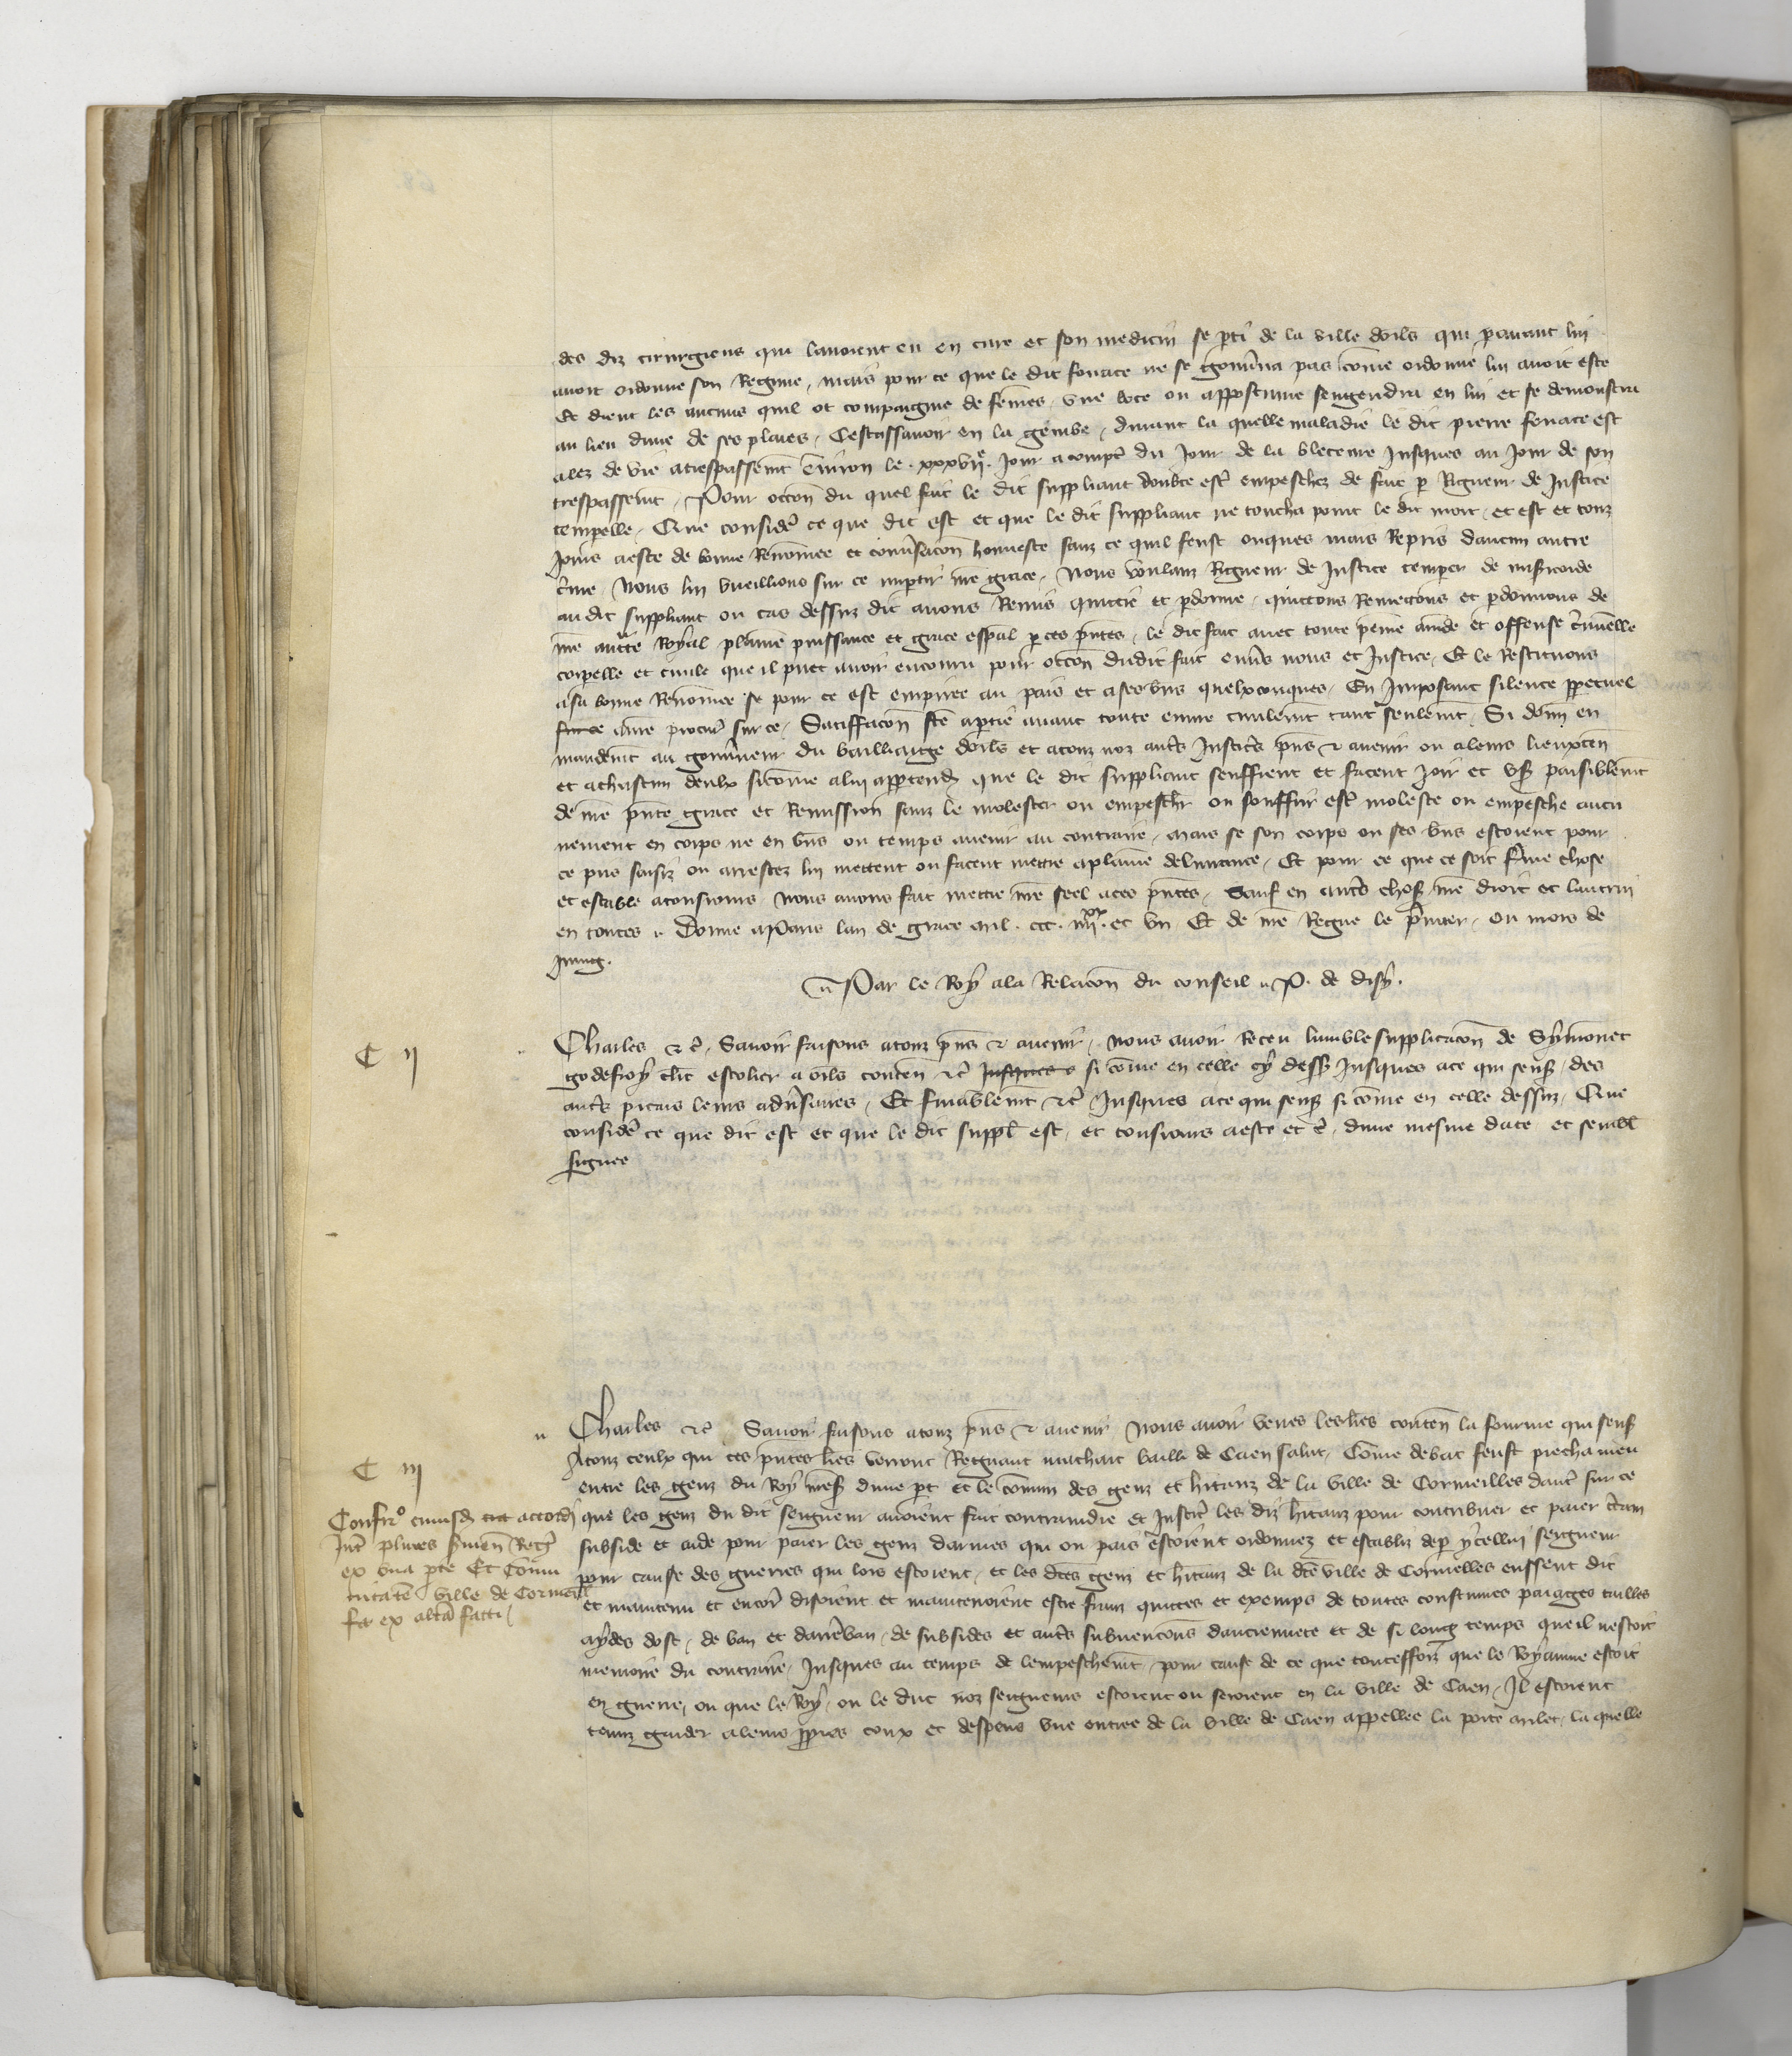 des diz cirurgiens qui lavoient eu en cure et son medicin se pti de la ville dorls qui pavant lui
avoit ordonne son Regime, mais pour ce que le dit fouace ne se gouvna pas come ordonne lui avoit este
Et dient les aucuns quil ot compaignie de femes, une boce ou appostume sengendra en lui et se demonstra
au lieu dune de ses plaies, Cestassavoir en la gembe, durant la quelle maladie le dit pierre fouace est
alez de vie atrespassemt Environ le .xxxviie. Jour a compt du Jour de la bleceure Jusques au Jour de son
trespassemt, Pour occon du quel fait le dit suppliant doubte est empeschez de fait p Rigueur de Justice
tempelle, Que consider ce que dit est et que le dit suppliant ne toucha point le dit mort, et est et touz
Jours aeste de bonne Renomee et convsacon honneste sanz ce quil feust onques mais Repris daucun autre
cme, Nous lui vueillions sur ce impartir nre grace, Nous voulanz Rigueur de Justice temper de misicorde
au dit suppliant ou cas dessuz dit avons Remis quittie et pdonne, quittons Remettons et pdonnons de
nre aucte Royal plaine puissance et grace espal p ces pntes, le dit fait avec toute peine amde et offense cminelle
corpelle et civile que il puet avoir encouru pour occon dudit fait envs nous et Justice, Et le Restituons
asa bonne Renomee se pour ce est empiree au pais et ases bns quelxconques, En Imposant silence ppetuel
sur ce anre procur sur ce, Satiffacon fte aptie avant toute euvre civilemt tant seulemt, Si donn en
mandemt au gouvneur du bailliaige dorls et atouz noz auts Justics pns & avenir ou aleurs lieuxten
et achascun deulx sicome alui apptend que le dit suppliant seuffrent et facent Joir et user paisiblemt
de nre pnte grace et Remission sanz le molester ou empescher ou souffrir est moleste ou empesche aucu
nement en corps ne en bns ou temps avenir au contraire, mais se son corps ou ses bns estoient pour
ce pris saisiz ou arrestez lui mettent ou facent mettre aplaine delivrance, Et pour ce que ce soit ferme chose
et estable atousiours, Nous avons fait mettre nre seel aces pntes, Sauf en auts choses nre droit et lautrui
en toutes. Donne aParis lan de grace mil. ccc. iiiixx. et un Et de nre Regne le premier, ou mois de
Juing.
Par le Roy ala Relacon du conseil P. de disy.
C ij
Charles & c, Savoir faisons atouz pns & avenir, Nous avoir Receu lumble supplicacon de Symonnet
godefroy clic escolier a orls conten &c Jusques si come en celle cy dess Jusques ace qui sens, des
auts prcais leurs advsaires, Et finablemt &c Jusques ace qui sens si come en celle dessuz, Que
consider ce que dit est et que le dit suppl est, et tousiours aeste et c, dune mesme date et sembl
signee
C iij
Confir cuiusd accordi
Int plures firmen Reg
ex una pte Et Comu
nitate ville de Cormeil
les ex alta facti
Charles &c Savoir faisons atouz pns & avenir Nous avoir veues les lres conten la fourme qui sens
Atouz ceulx qui ces pntes lres verront Regnaut machart bailli de Caen salut, Come debat feust piecha meu
entre les genz du Roy nres dune pt et le comun des genz et hitanz de la ville de Cormeilles daut sur ce
que les genz du dit seigneur avoient fait contraindre et Justic les diz hitanz pour contribuer et paier ctain
subside et aide pour paier les genz darmes qui ou pais estoient ordonnez et establiz dep ycellui seigneur
pour cause des guerres qui lors estoient, et les dtes genz et hitanz de la dte ville de Cormelles eussent dit
et maintenu et encor disoient et maintenoient estre franz quittes et exemps de toutes coustumes paiages tailles
aydes dost, de ban et darreban, de subsides et auts subvencons danciennete et de si long temps que il nestoit
memoire du contraire, Jusques au temps de lempeschemt, pour cause de ce que touteffoiz que le Royaume estoit
en guerre, ou que le Roy, ou le duc noz seigneurs estoient ou seroient en la ville de Caen, Il estoient
tenuz garder aleurs ppres coux et despens une entree de la ville de Caen appellee la porte arlet, la quelle